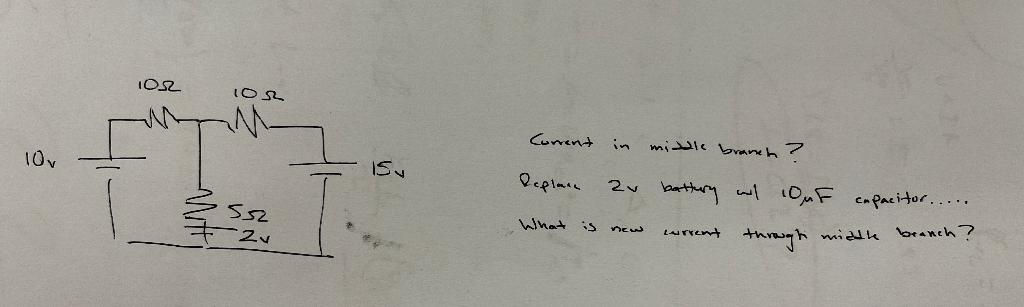 10Ω
10Ω
10v
15v
5Ω
2v
Current in middle branch?
Replace 2v battery w/ 10μF capacitor.....
What is new current through middle branch?